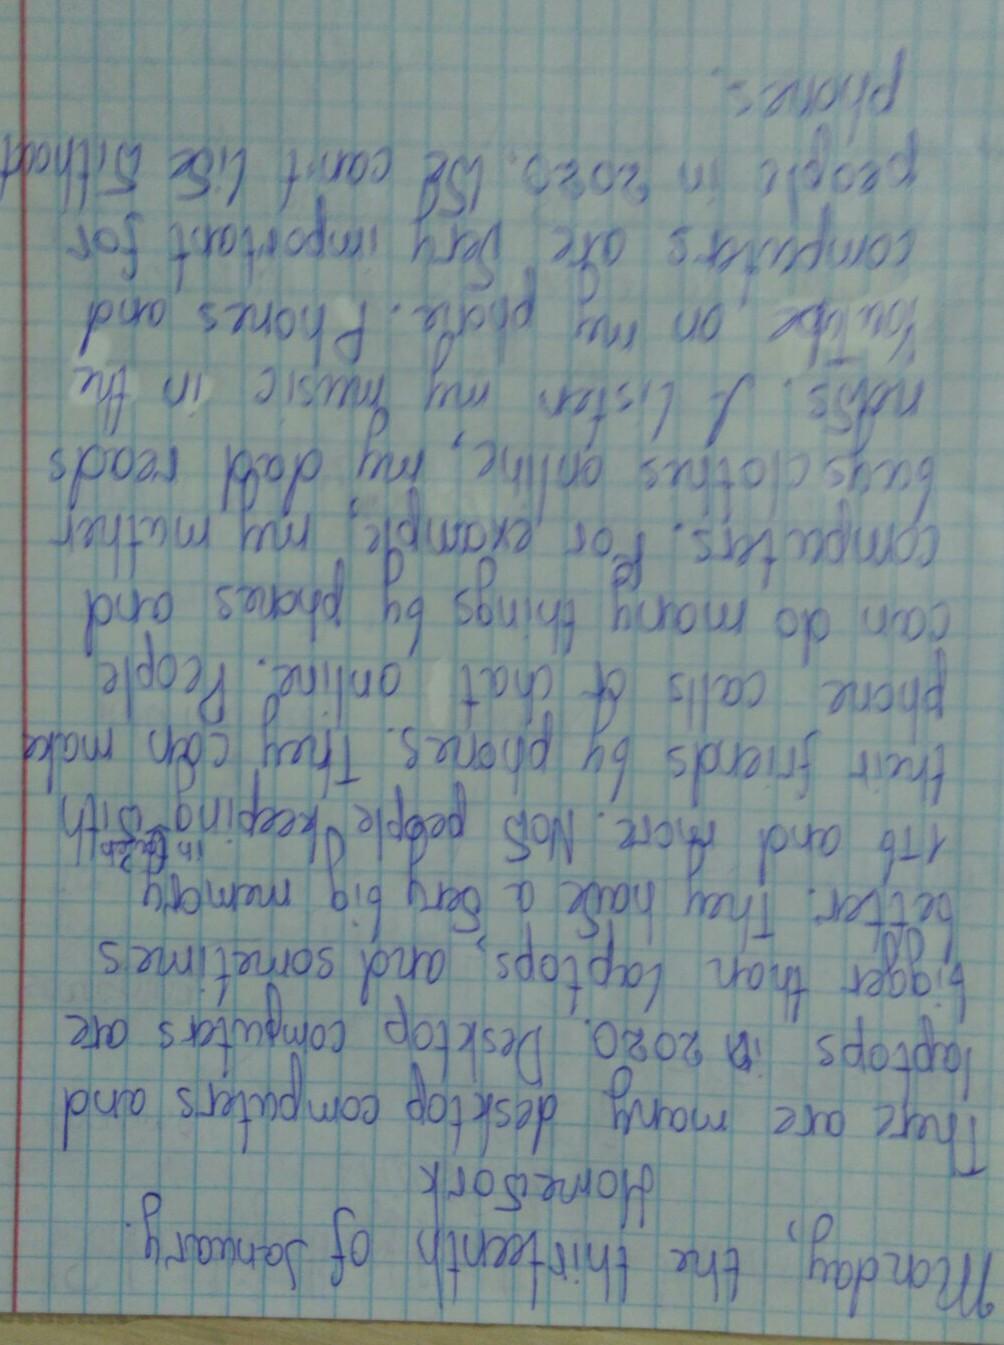 Monday, the thirteenth of January.
Homework
There are many desktop computers and
laptops in 2020. Desktop computers are
bigger than laptops, and sometimes
better. They have a very big memory
1TB and more. Now people keeping in touch with
their friends by phones. They can make
phone calls or chat online. People
can do many things by phones and
computers. For example, my muther
buys clothes online, my dad reads
news. I listen my music in the
YouTube on my phone. Phones and
computers are very important for
people in 2020. We can't live without
phones.